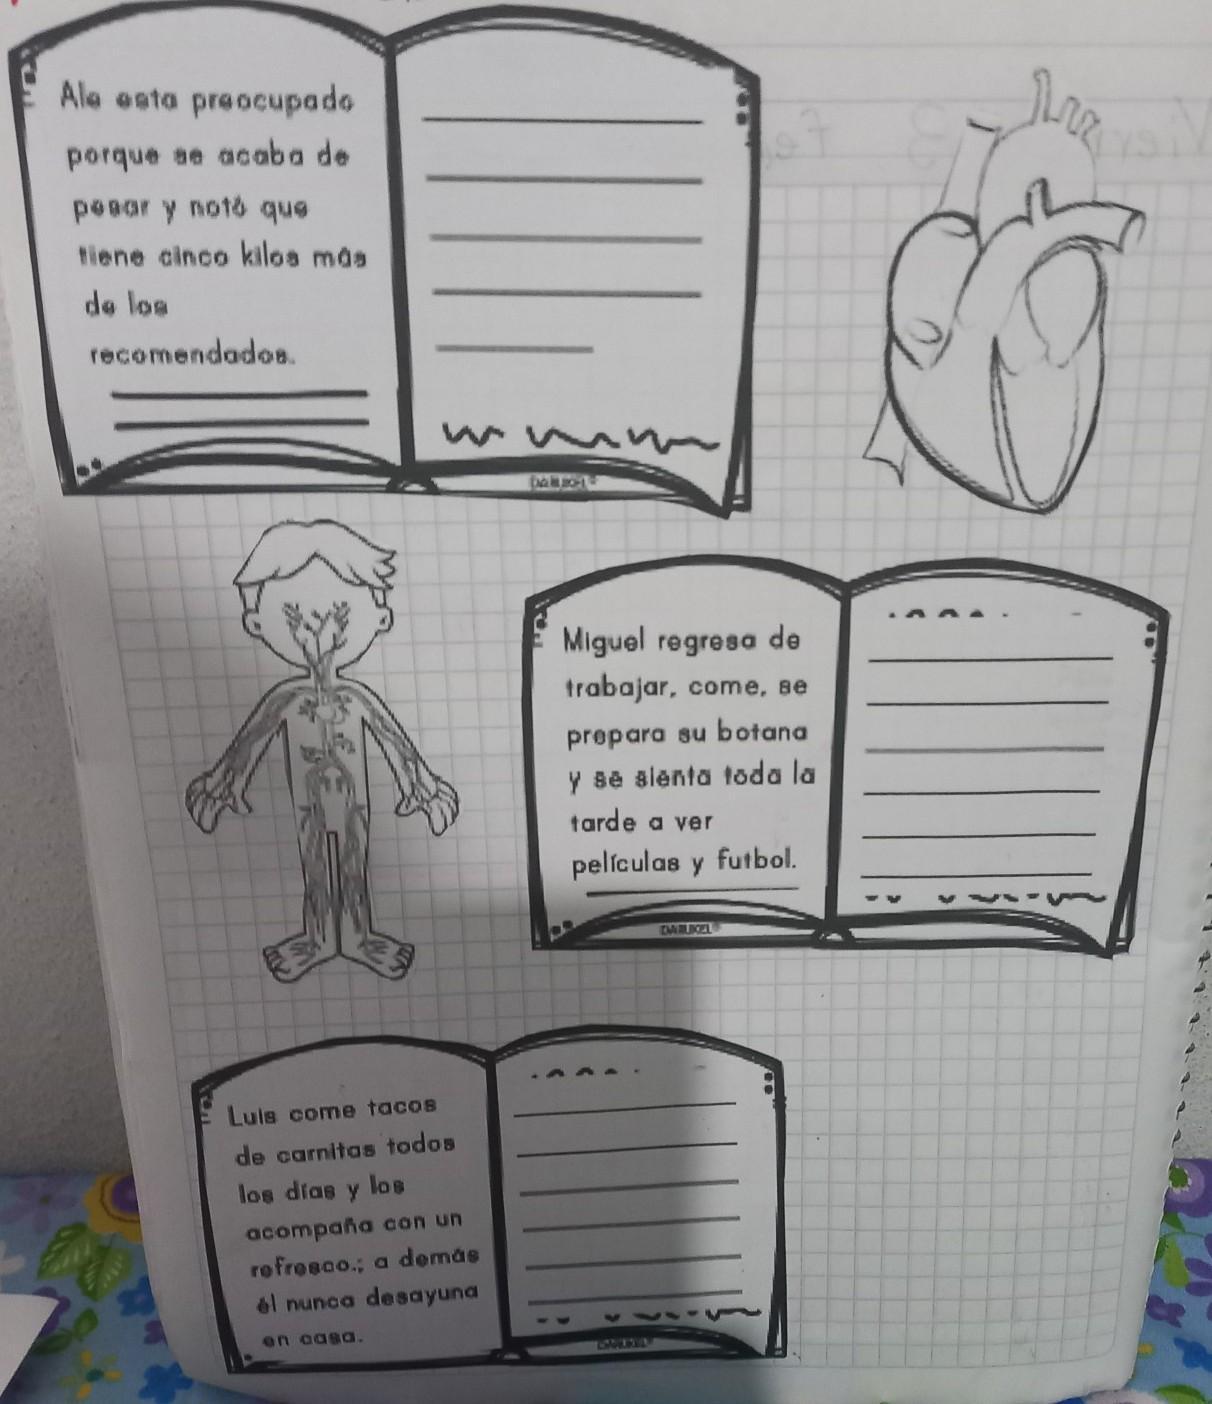 Ale esta preocupado
porque se acaba de
pesar y notó que
tiene cinco kilos más
de los
recomendados.
DARUKEL®
Miguel regresa de
trabajar, come, se
prepara su botana
y se sienta toda la
tarde a ver
películas y futbol.
DARUKEL®
Luis come tacos
de carnitas todos
los días y los
acompaña con un
refresco.; a demás
él nunca desayuna
en casa.
DARUKEL®